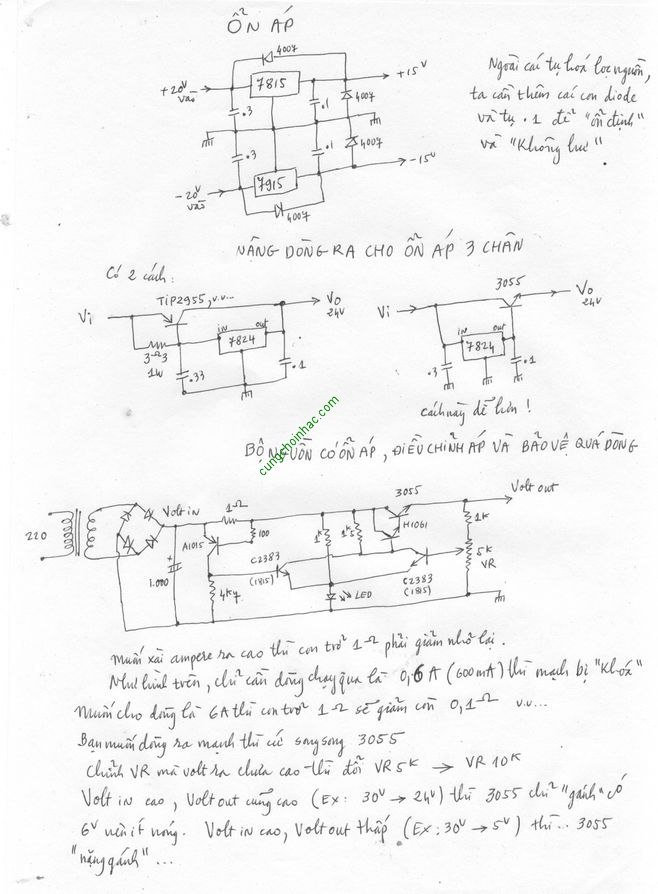 ỔN ÁP
4007
+20V
vào
7815
+15V
.3
.1
4007
.3
.1
4007
-20V
vào
7915
-15V
4007
Ngoài cái tụ hoá lọc nguồn,
ta cần thêm cái con diode
và tụ .1 để "ổn định"
và "không hư"
NÂNG DÒNG RA CHO ỔN ÁP 3 CHÂN
Có 2 cách:
TIP2955, v.v...
Vi
Vo
24V
in
out
7824
3Ω3
1W
.33
.1
3055
Vi
Vo
24V
in
out
7824
.3
.1
cách này dễ hơn!
cungchoinhac.com
BỘ NGUỒN CÓ ỔN ÁP, ĐIỀU CHỈNH ÁP VÀ BẢO VỆ QUÁ DÒNG
220
Volt in
1Ω
3055
Volt out
A1015
100
1K
1K5
H1061
1K
1.000
C2383
(1815)
5K
VR
4K7
LED
C2383
(1815)
Muốn xài ampere ra cao thì con trở 1Ω phải giảm nhỏ lại.
Như hình trên, chỉ cần dòng chạy qua là 0,6A (600mA) thì mạch bị "khoá"
Muốn cho dòng là 6A thì con trở 1Ω sẽ giảm còn 0,1Ω v.v...
Bạn muốn dòng ra mạnh thì cứ song song 3055
Chỉnh VR mà volt ra chưa cao thì đổi VR 5K → VR 10K
Volt in cao, Volt out cũng cao (Ex: 30V → 24V) thì 3055 chỉ "gánh" có
6V nên ít nóng. Volt in cao, Volt out thấp (Ex: 30V → 5V) thì... 3055
"nặng gánh"...